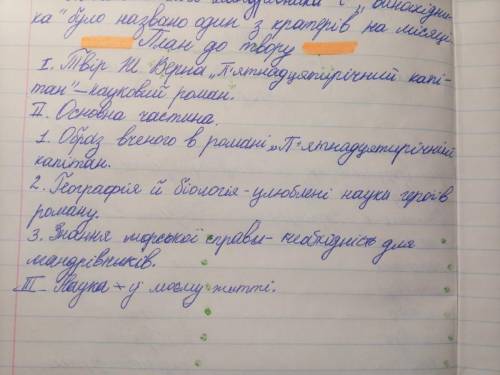 винахідни-
ка" було названо один з кратерів на місяці
План до твору
I. Твір Ж. Верна „П'ятнадцятирічний капі-
тан" – науковий роман.
II. Основна частина.
1. Образ вченого в романі „П'ятнадцятирічний
капітан.
2. Географія й біологія - улюблені науки героїв
роману.
3. Знання морської справы - необхідність для
мандрівників.
III – Наука – у моєму житті.